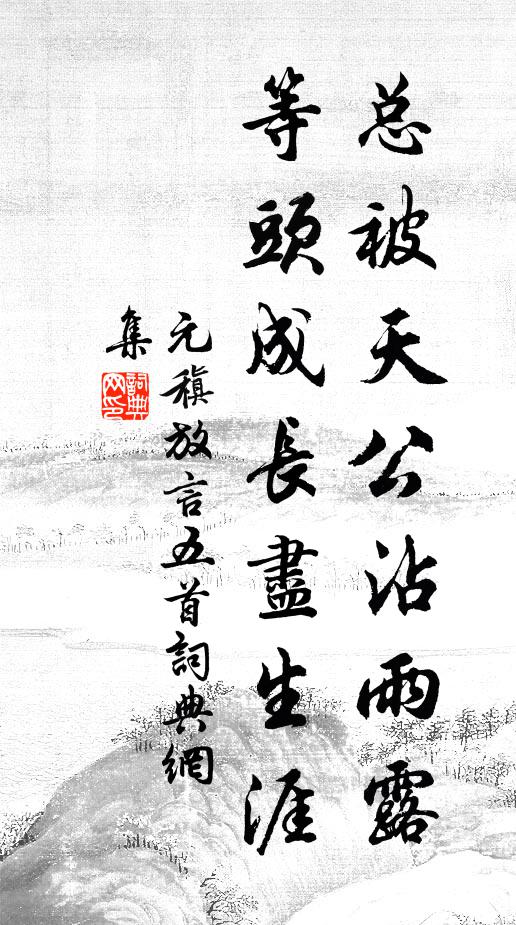 总被天公沾雨露
等頭成長盡生涯
元稹放言五首詞典網
集
詞典
网印